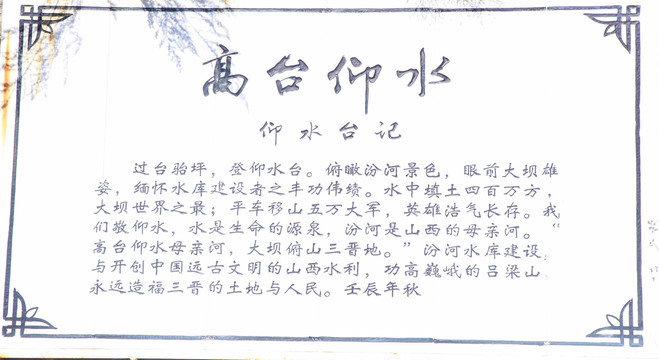 高台仰水
仰水台记
过台骀坪，登仰水台。俯瞰汾河景色，眼前大坝雄
姿，缅怀水库建设者之丰功伟绩。水中填土四百万方，
大坝世界之最；平车移山五万大军，英雄浩气长存。我
们敬仰水，水是生命的源泉，汾河是山西的母亲河。“
高台仰水母亲河，大坝俯山三晋地。”汾河水库建设，
与开创中国远古文明的山西水利，功高巍峨的吕梁山，
永远造福三晋的土地与人民。壬辰年秋